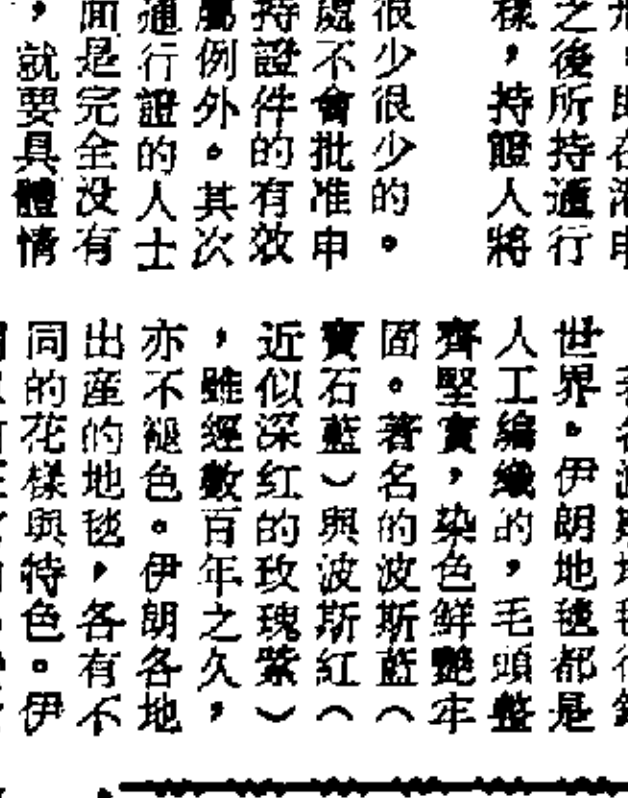 樣，持證人將
之後所持通行
很少很少的。
處不會批准申
持證件的有效
屬例外。其次
通行證的人士
面是完全没有
，就要具體情
世界。伊朗地毯都是
人工編織的，毛頭整
齊堅實，染色鮮艷牢
固。著名的波斯藍（
寶石藍）與波斯紅（
近似深红的玫瑰紫）
，雖經數百年之久，
亦不褪色。伊朗各地
出產的地毯，各有不
同的花樣與特色。伊